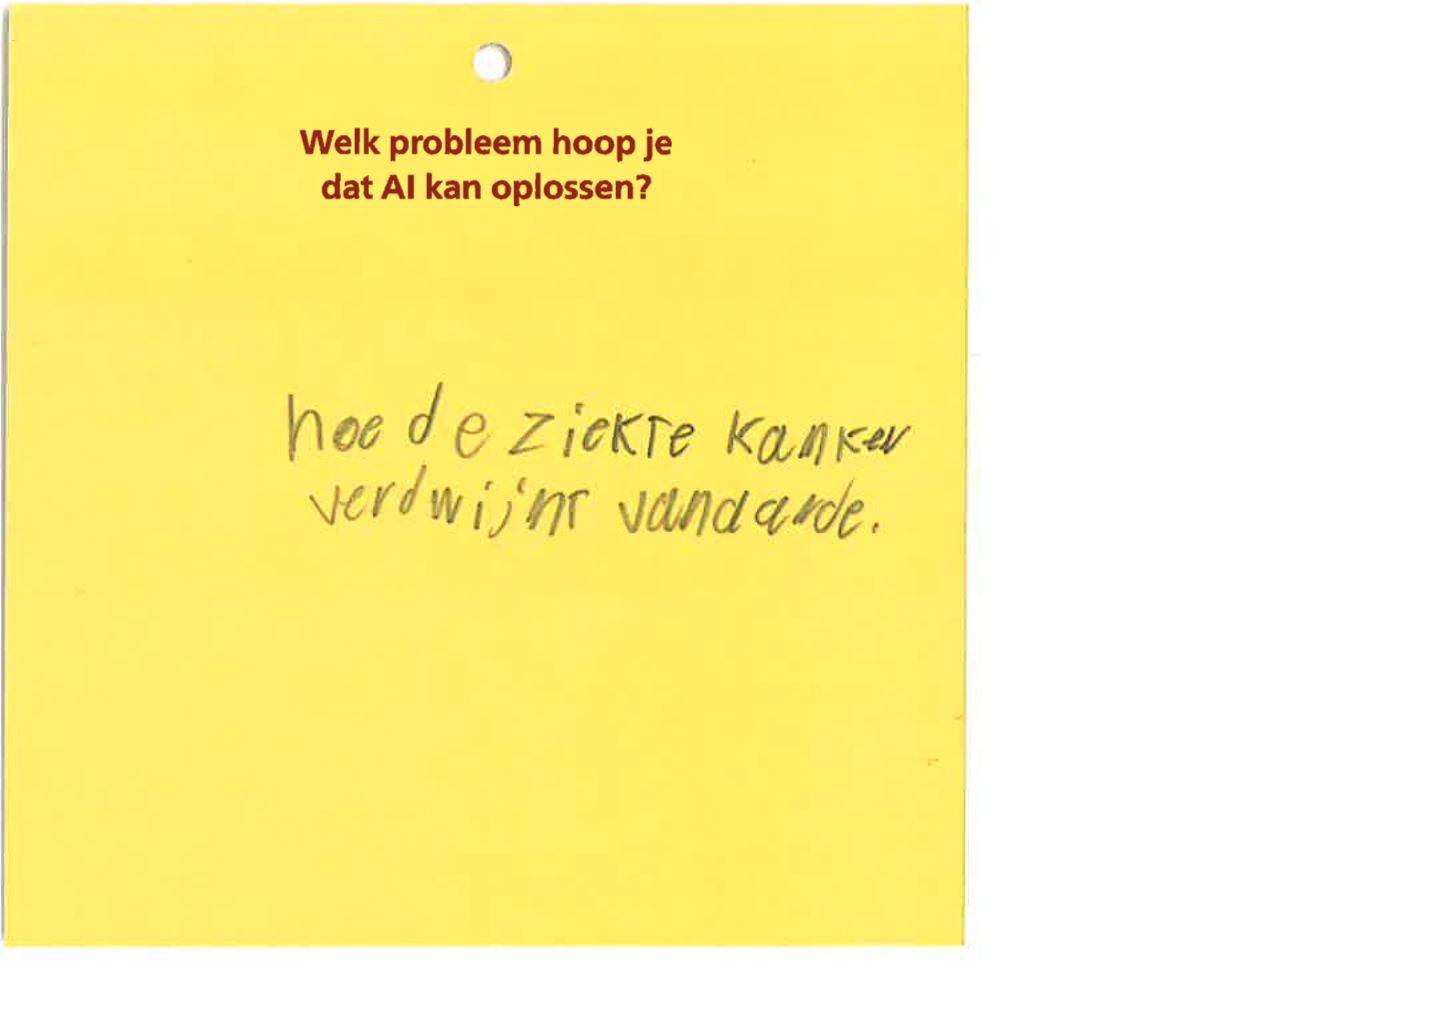 Welk probleem hoop je
dat AI kan oplossen?
hoe de ziekte kanker
verdwijnt vandaarde.